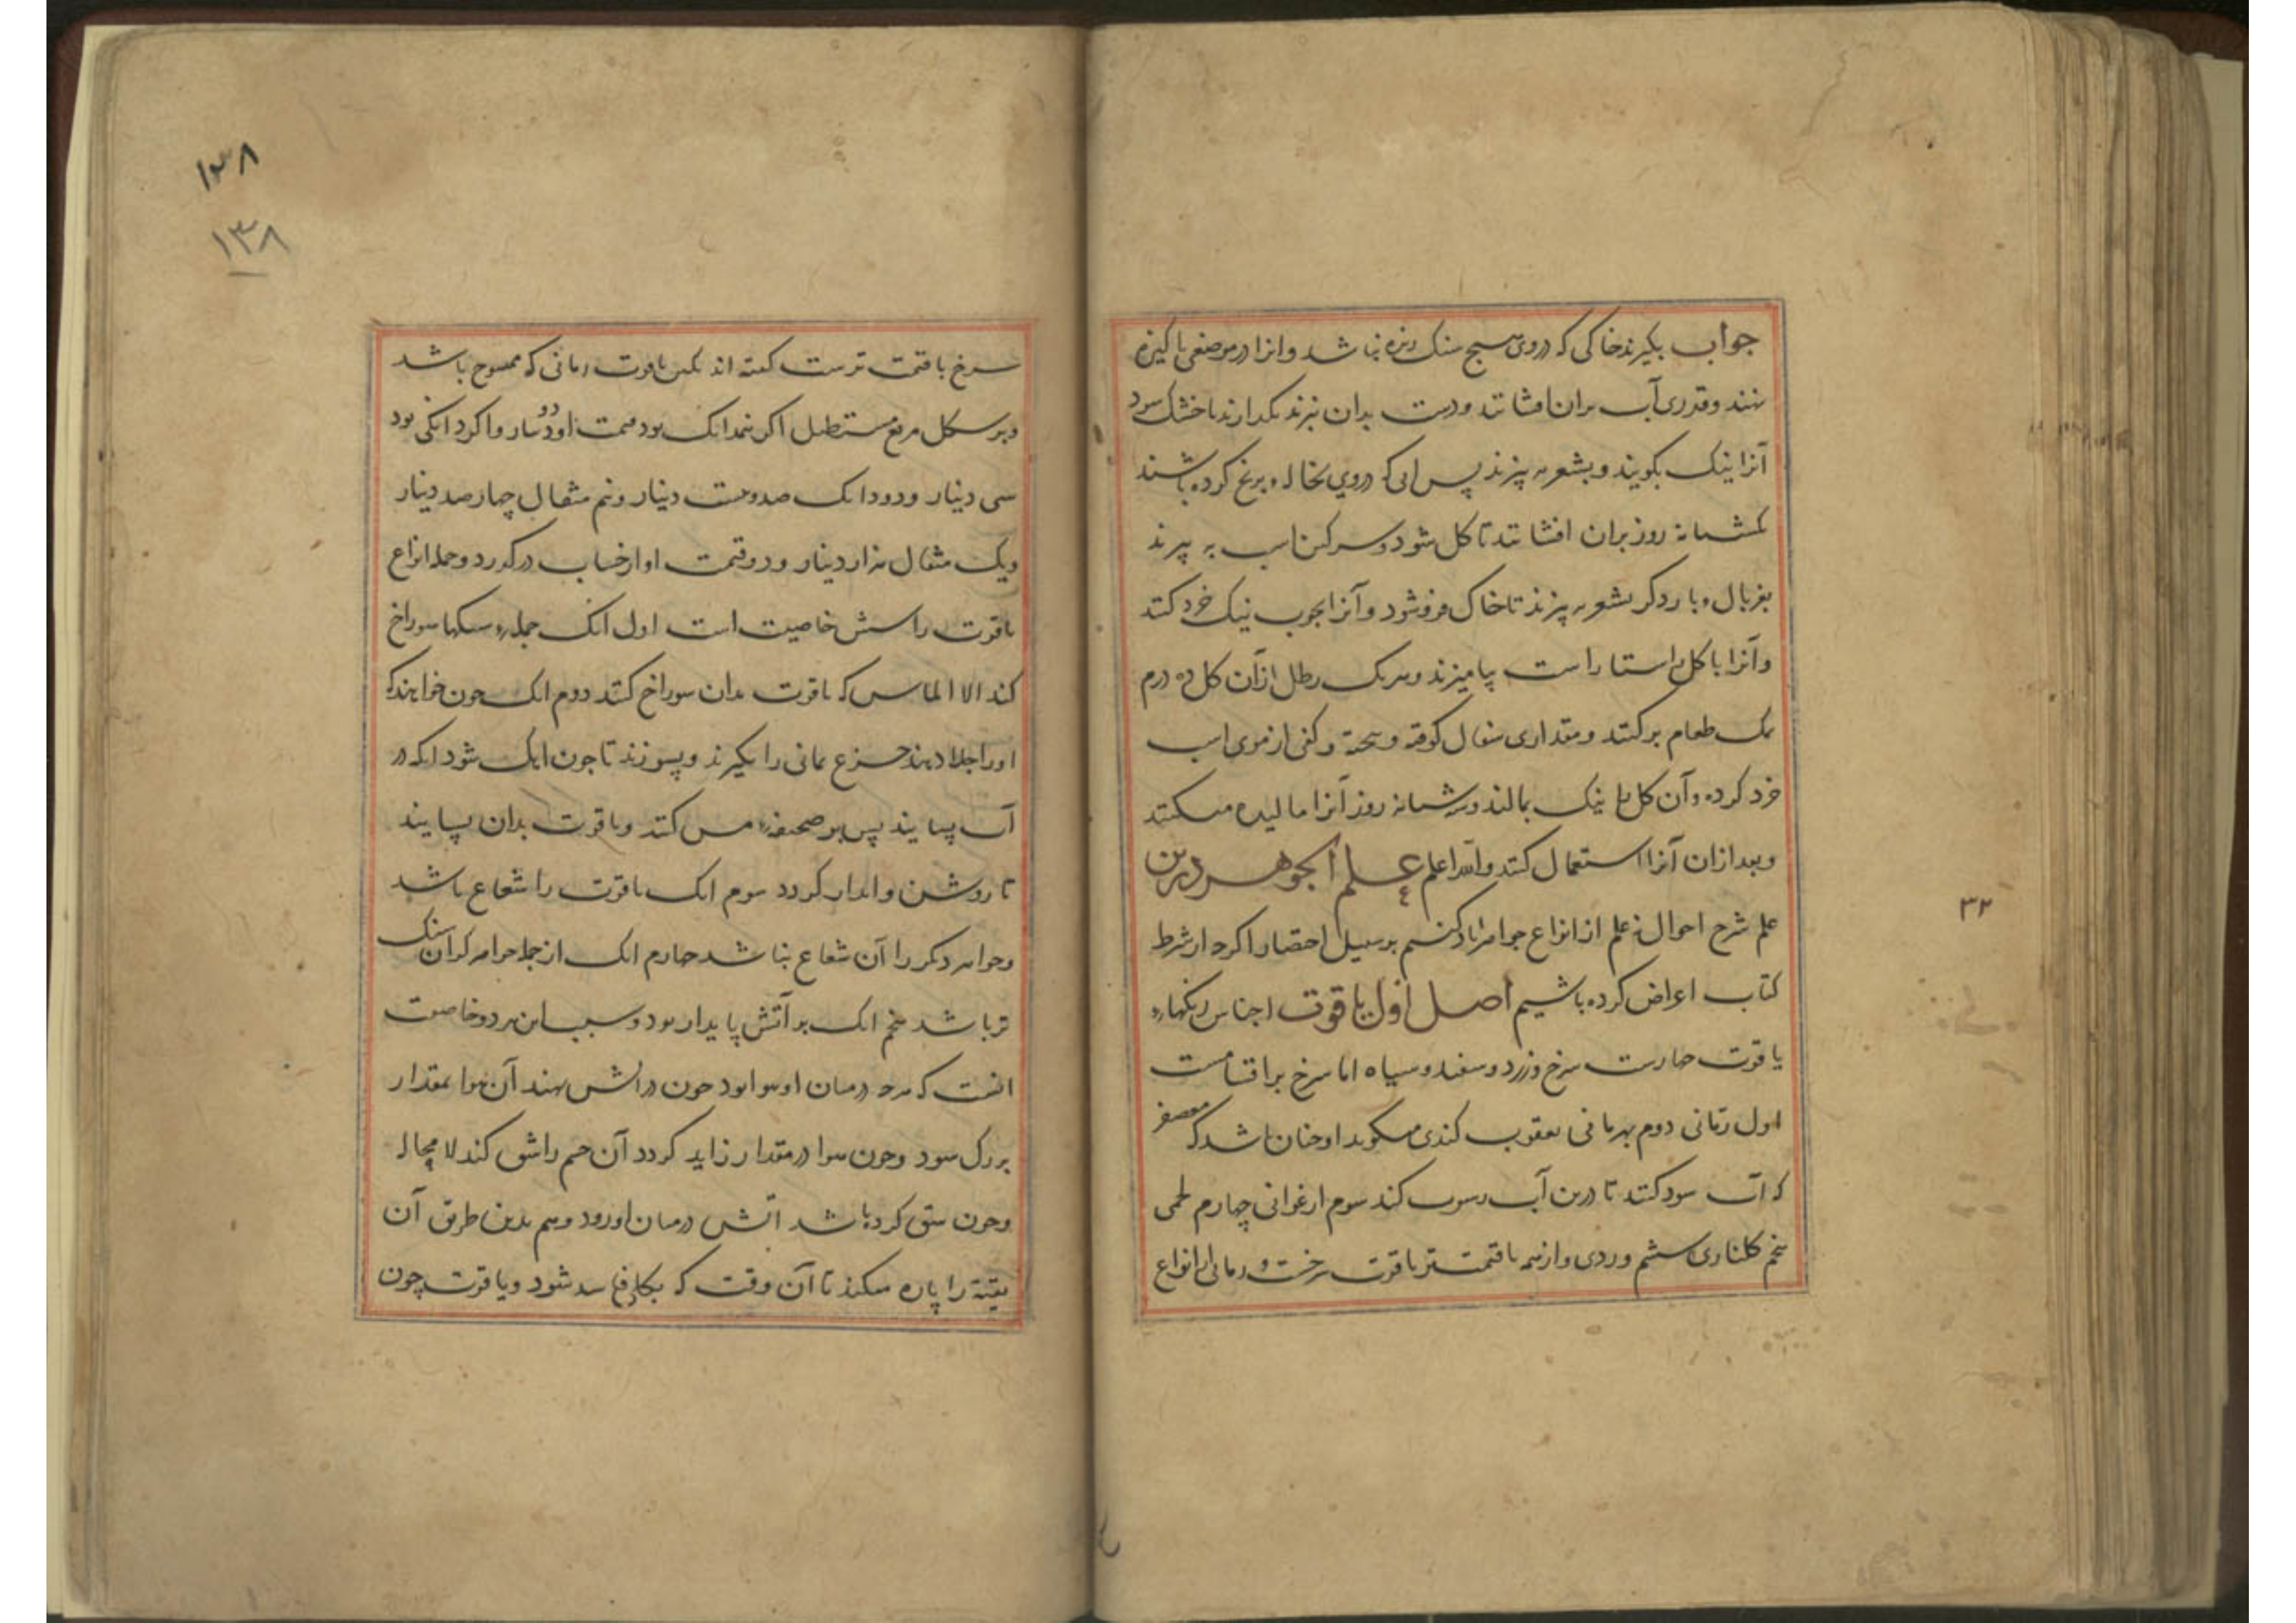 جواب بگیرند خاکی که دروی هیچ سنک ریزه نباشد وانرا در موضعی پاکیزه
نهند وقدری آب بران افشانند ودست بدان نبرند بگذارند تا خشک شود
آنرا نیک بکوبند وبشعریه بپزند پس آبی که دروی نخاله وبرنج کرده باشند
یکشبانه روز بران افشانند تا کل شود وسرکین اسب به بپزند
بغربال وبار دکر بشعریه بپزند تا خاک فروشود وآنرا بچوب نیک خرد کنند
وآنرا با کل راستا راست بیامیزند وبهر یک رطل ازان کل ده درم
نمک طعام برکنند ومقداری سفال کوفته وبیخته وکفی از موی اسب
خرد کرده وآن کل را نیک بمالند وسه شبانه روز آنرا مالیده میکنند
وبعد ازان آنرا استعمال کنند والله اعلم علم الجوهر درین
علم شرح احوال نه علم از انواع جواهر یاد کنیم بر سبیل اختصار اکرچه از شرط
کتاب اعراض کرده باشیم اصل اول یاقوت اجناس رنکهاء
یاقوت چهارست سرخ وزرد وسفید وسیاه اما سرخ بر اقسامست
اول رمانی دوم بهرمانی یعقوب کندی میکوید او چنان باشد که معصفر
که آب سود کنند تا درین آب رسوب کند سوم ارغوانی چهارم لحمی
پنجم کلناری ششم وردی واز همه باقیمت‌تر یاقوت سرخست ورمانی از انواع
۳۲
۱۳۸
۱۳۸
سرخ باقیمت ترست کفته اند یکی یاقوت رمانی که ممسوح باشد
وبر شکل مربع مستطیل اکر نیم دانک بود قیمت او دو دینار واکر دانکی بود
سی دینار ودو دانک صد وبیست دینار ونیم مثقال چهار صد دینار
ویک مثقال هزار دینار ودر قیمت او از حساب درکذرد وجمله انواع
یاقوت را شش خاصیت است اول انک جمله سنکها سوراخ
کند الا الماس که یاقوت بدان سوراخ کنند دوم انک چون خواهند که
اورا جلا دهند جزع یمانی را بکیرند وبسوزند تا چون اهک شود انکه در
آب بسایند پس بر صحیفه مس کنند ویاقوت بدان بسایند
تا روشن وابدار کردد سوم انک یاقوت را شعاع باشد
وجواهر دکر را آن شعاع نباشد چهارم انک از جمله جواهر کران سنک
تر باشد پنجم انک بر آتش پایدار بود وسبب این هر دو خاصیت
انست که هرچه درمیان او هوا بود چون در اتش نهند آن هوا بمقدار
بزرک شود وچون هوا در مقدار زاید کردد آن جسم را شق کند لا محاله
وچون شق کرده باشد اتش درمیان او رود وهم بدین طریق آن
بقیه را پاره میکند تا آن وقت که بکلی فاسد شود ویاقوت چون